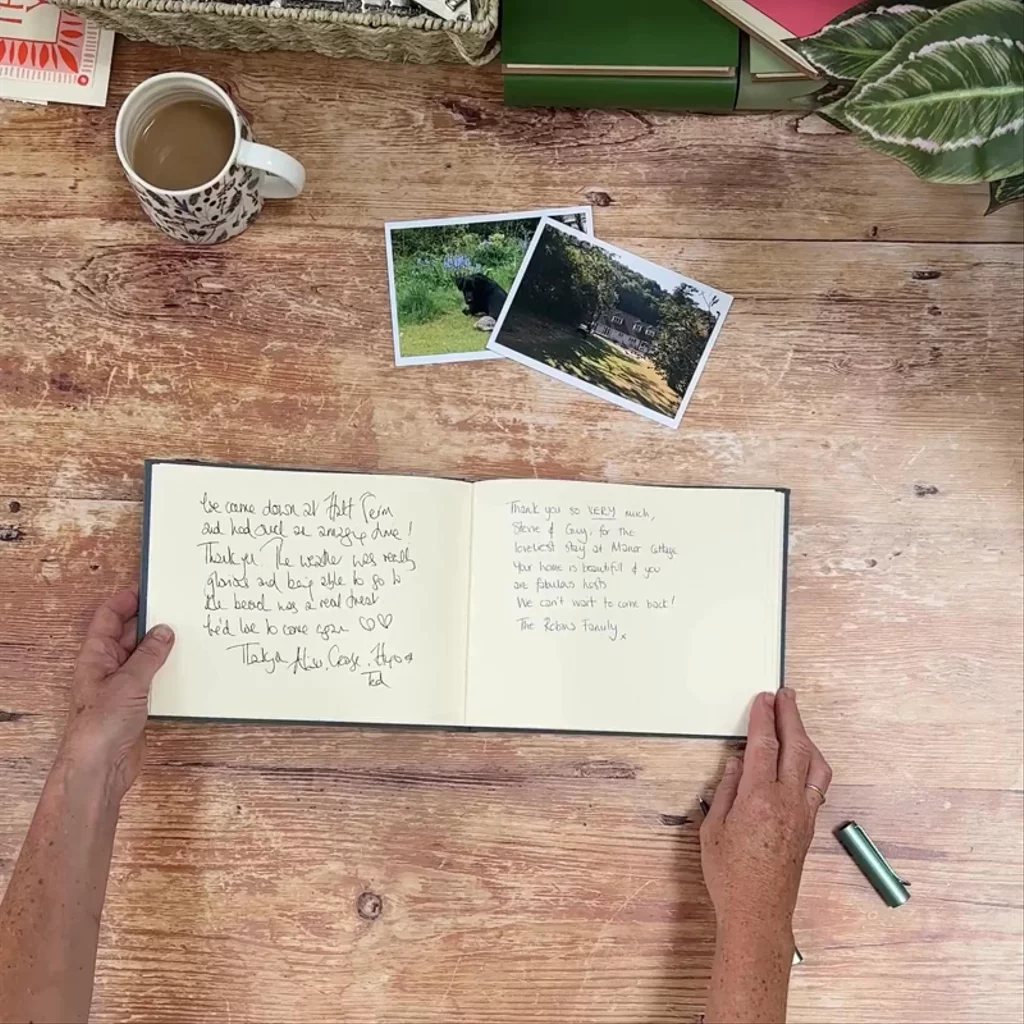 We came down at Half Term
and had such an amazing time!
Thank you. The weather was really
glorious and being able to go to
the beach was a real treat
We'd love to come again ♡♡
Thank you
Ted
Thank you so VERY much,
& Guy, for the
loveliest stay at Manor Cottage.
Your home is beautiful & you
are fabulous hosts
We can't wait to come back!
The Robins Family x